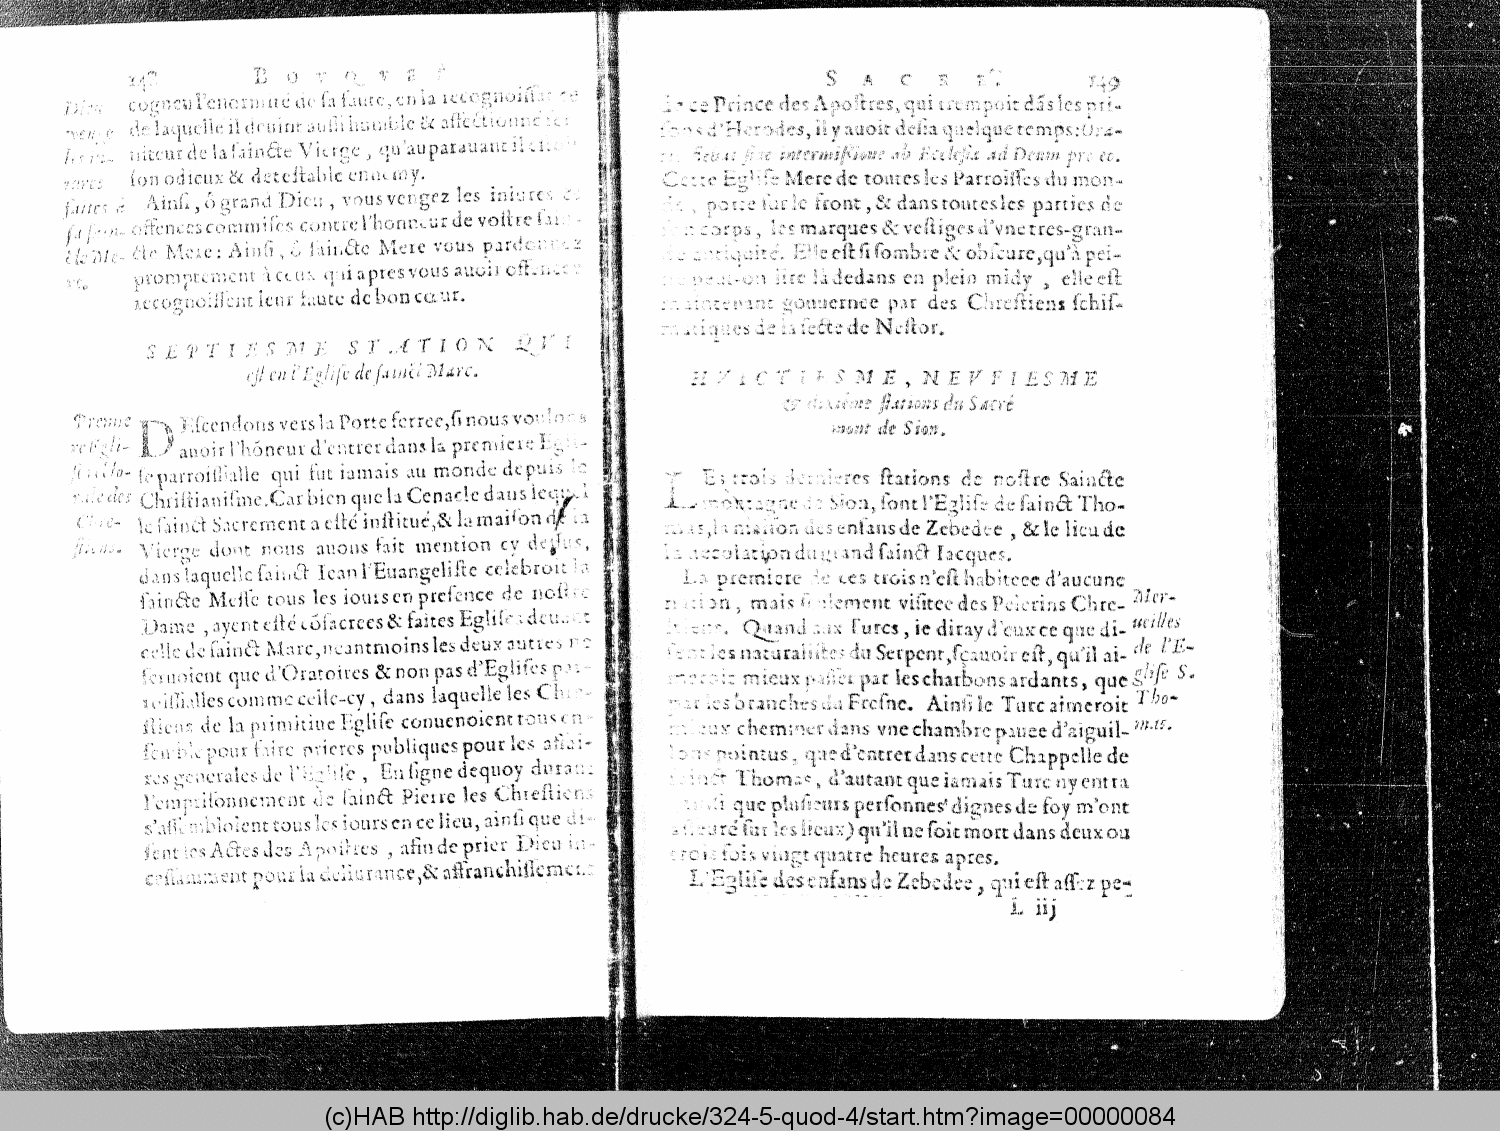 BOVQVET
cogneu l'enormité de sa faute, en la recognoissance
de laquelle il deuint aussi humble & affectionné ser-
uiteur de la saincte Vierge, qu'auparauant il estoit
son odieux & detestable ennemy.
Ainsi, ô grand Dieu, vous vengez les iniures &
offences commises contre l'honneur de vostre sain-
cte Mere: Ainsi, ô saincte Mere vous pardonnez
promptement à ceux qui apres vous auoir offencee
recognoissent leur faute de bon cœur.
Dieu
venge
les in-
iures
faites à
sa sain-
cte Me-
re.
SEPTIESME STATION QVI
est en l'Eglise de sainct Marc.
Premie
re Egli-
se
rale des
Chre-
stiens.
DEscendons vers la Porte ferree, si nous voulons
auoir l'hõneur d'entrer dans la premiere Egli-
se parroissialle qui fut iamais au monde depuis le
Christianisme. Car bien que la Cenacle dans lequel
le sainct Sacrement a esté institué, & la maison de la
Vierge dont nous auons fait mention cy dessus,
dans laquelle sainct Iean l'Euangeliste celebroit la
saincte Messe tous les iours en presence de nostre
Dame, ayent esté cõsacrees & faites Eglises deuant
celle de sainct Marc, neantmoins les deux autres ne
seruoient que d'Oratoires & non pas d'Eglises par-
roissialles comme celle-cy, dans laquelle les Chre-
stiens de la primitiue Eglise conuenoient tous en-
semble pour faire prieres publiques pour les affai-
res generales de l'Eglise, En signe dequoy durant
l'emprisonnement de sainct Pierre les Chrestiens
s'assembloient tous les iours en ce lieu, ainsi que di-
sent les Actes des Apostres, afin de prier Dieu in-
cessamment pour la deliurance, & affranchissement
SACRE'. 149
de ce Prince des Apostres, qui trempoit dãs les pri-
sons d'Herodes, il y auoit desia quelque temps: Ora-
tio fiebat sine intermissione ab Ecclesia ad Deum pro eo.
Cette Eglise Mere de toutes les Parroisses du mon-
de, porte sur le front, & dans toutes les parties de
son corps, les marques & vestiges d'vne tres-gran-
de antiquité. Elle est si sombre & obscure, qu'à pei-
ne peut-on lire là dedans en plein midy, elle est
maintenant gouuernee par des Chrestiens schis-
matiques de la secte de Nestor.
HVICTIESME, NEVFIESME
& dixiéme stations du Sacré
mont de Sion.
LEs trois dernieres stations de nostre Saincte
montagne de Sion, sont l'Eglise de sainct Tho-
mas, la maison des enfans de Zebedee, & le lieu de
la decolation du grand sainct Iacques.
La premiere de ces trois n'est habitee d'aucune
nation, mais seulement visitee des Pelerins Chre-
stiens. Quand aux Turcs, ie diray d'eux ce que di-
sent les naturalistes du Serpent, sçauoir est, qu'il ai-
meroit mieux passer par les charbons ardants, que
par les branches du Fresne. Ainsi le Turc aimeroit
mieux cheminer dans vne chambre pauee d'aiguil-
lons pointus, que d'entrer dans cette Chappelle de
sainct Thomas, d'autant que iamais Turc ny entra
(ainsi que plusieurs personnes dignes de foy m'ont
asseuré sur les lieux) qu'il ne soit mort dans deux ou
trois fois vingt quatre heures apres.
L'Eglise des enfans de Zebedee, qui est assez pe-
Mer-
ueilles
de l'E-
glise S.
Tho-
mas.
L iij
(c)HAB http://diglib.hab.de/drucke/324-5-quod-4/start.htm?image=00000084